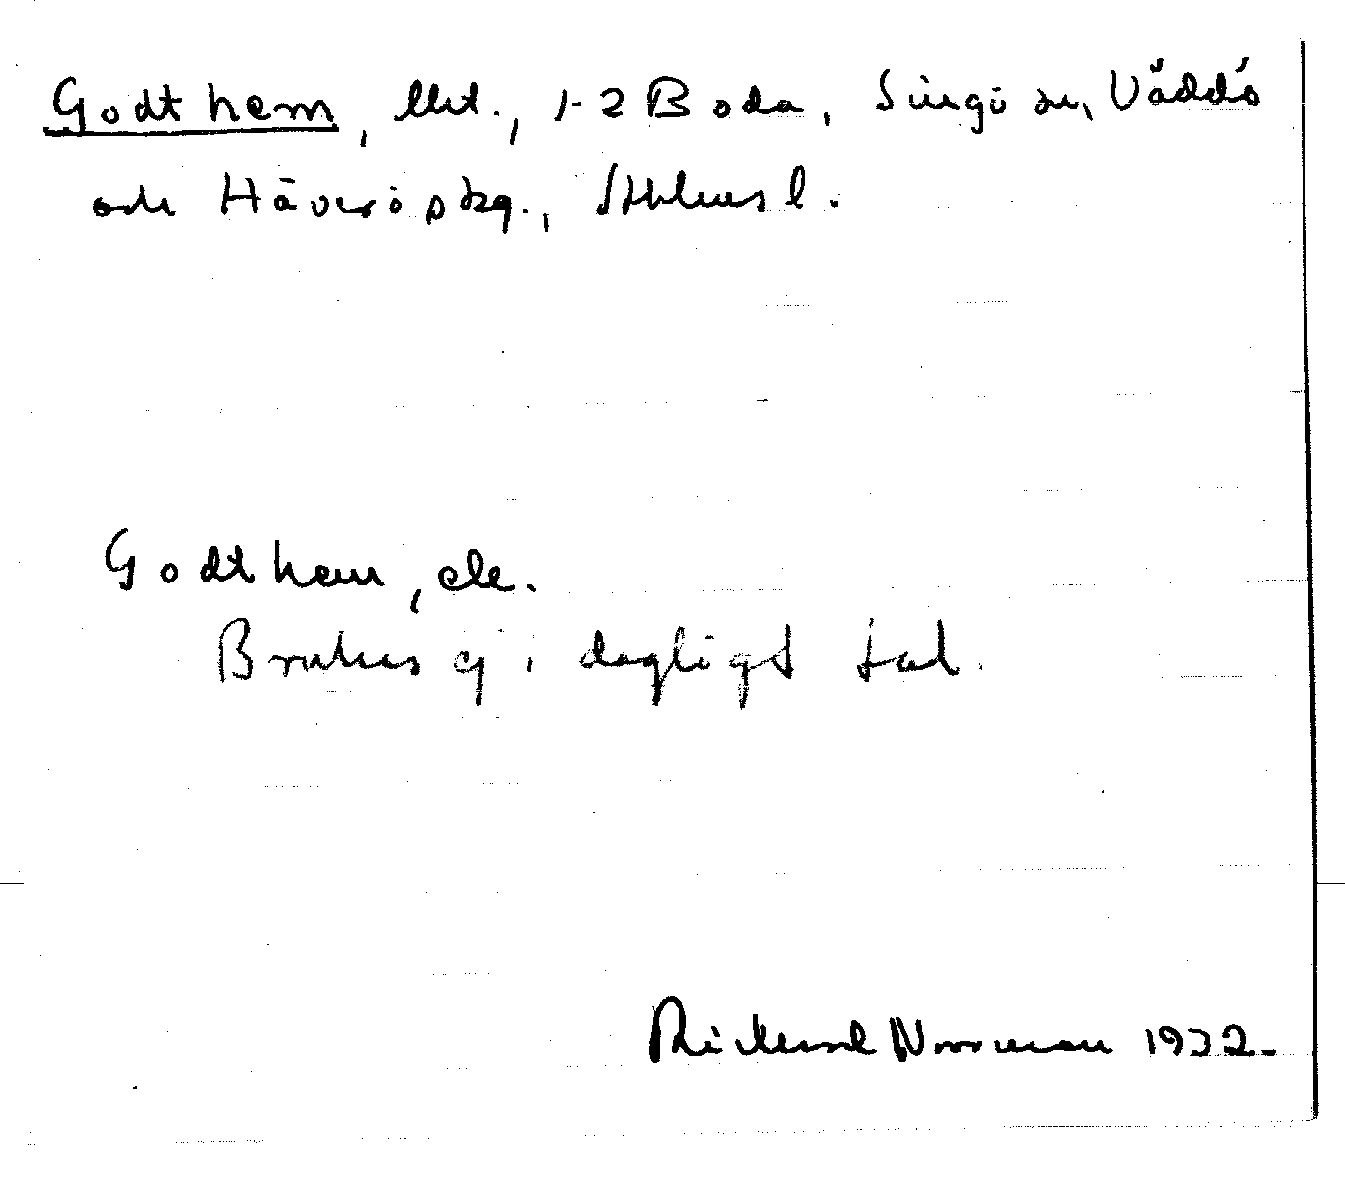 Godthem, lht., 1-2 Boda, Singö sn, Väddö
och Häverö skg., Sthlms l.
Godthem, ele.
Brukas ej i dagligt tal.
Rickard Norrman 1932.